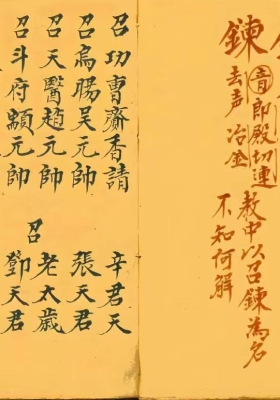 鍊
音郎殿切連
去声 冶金
教中以召鍊為名
不知何解
召功曹齋香請
召烏暘吳元帥
召天醫趙元帥
召斗府元帥
召
辛君天
張天君
老太歲
鄧天君